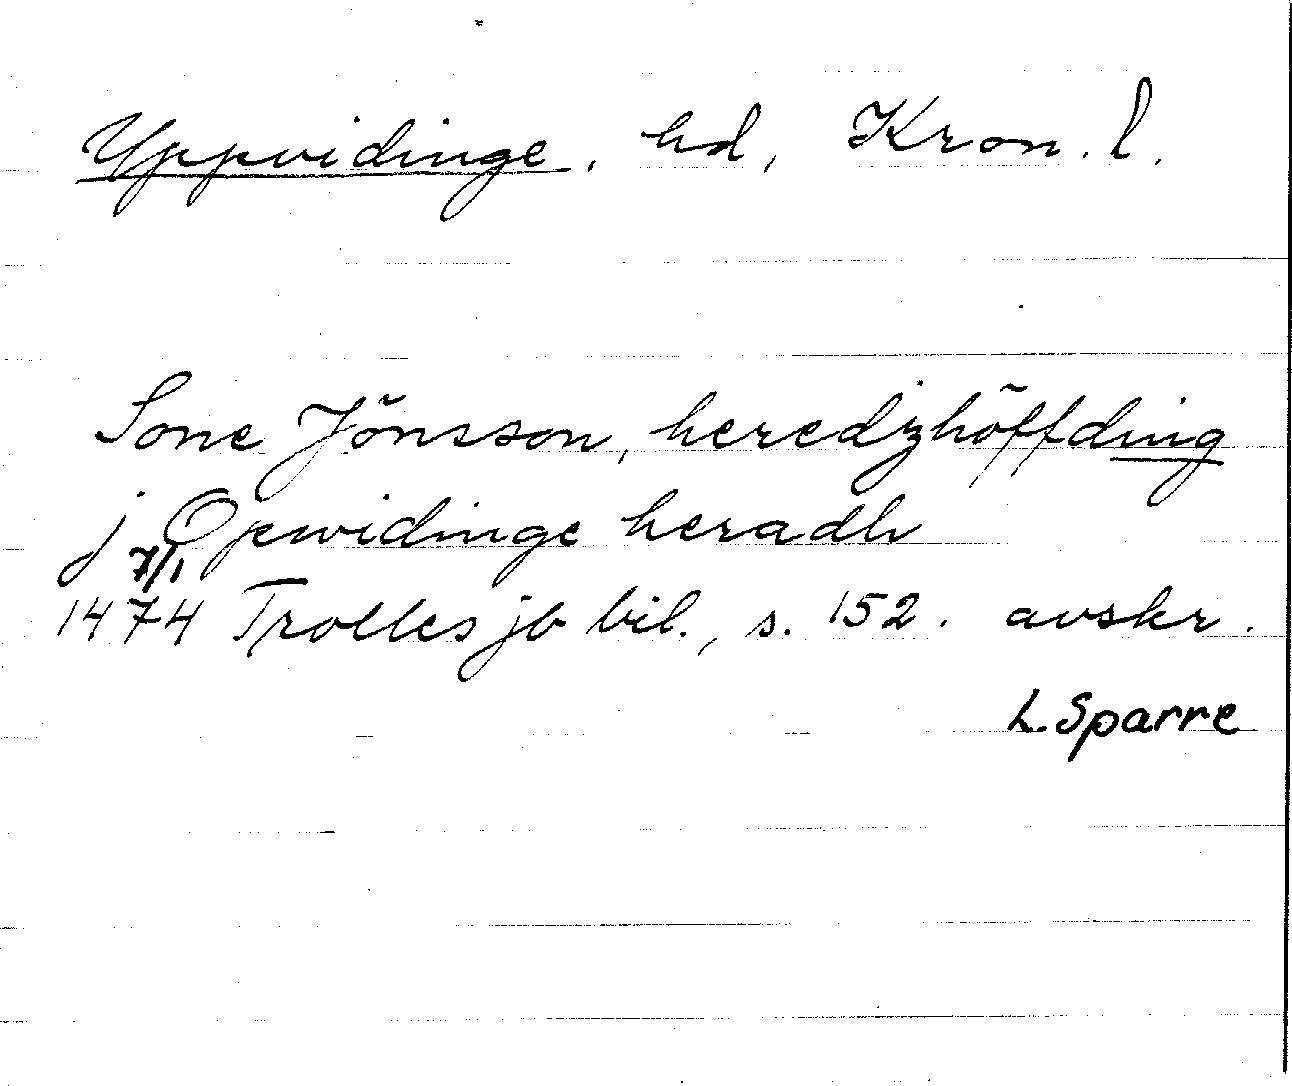 Uppvidinge. hd, Kron. l.
Sone Jönsson, heredzhöffding
j Opwidinge heradh
7/1
1474 Trolles jb bil., s. 152. avskr.
L. Sparre